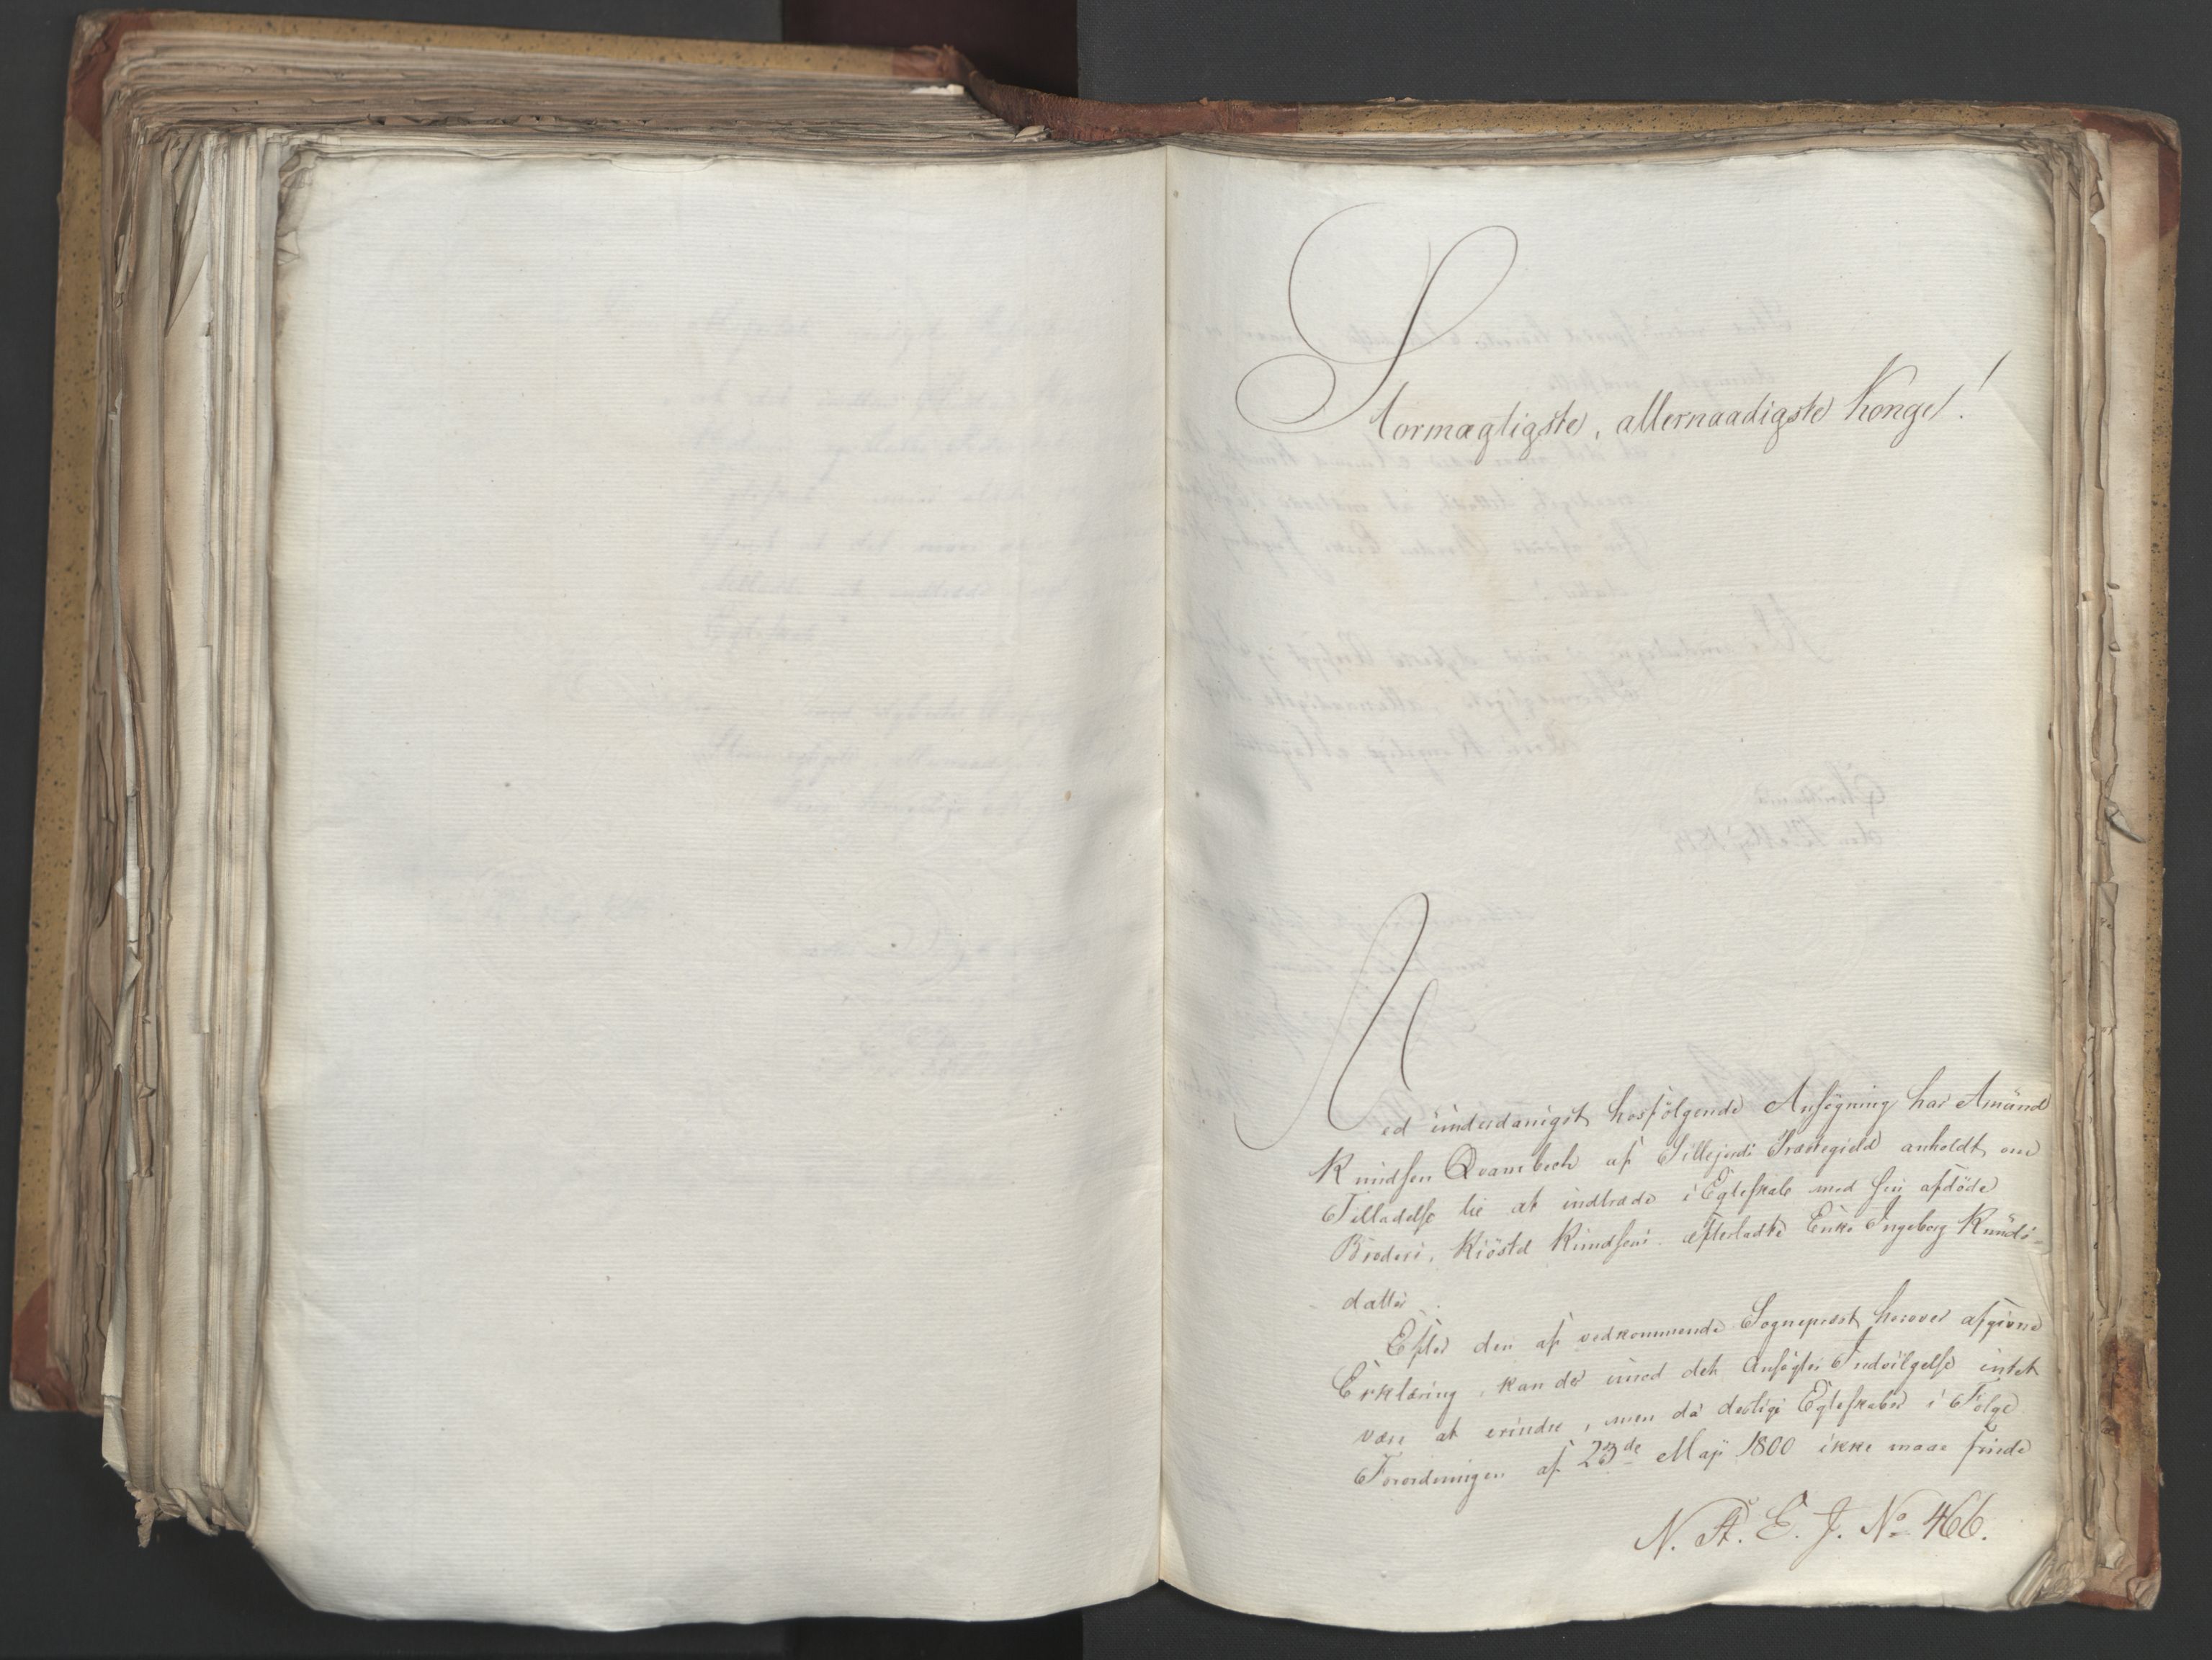 Stormægtigste, allernaadigste Konge!
Med underdanigst hosfølgende Ansøgning har Amund
Knudsen Qvambech af Sillejords Præstegield anholdt om
Tilladelse til at indtræde i Egteskab med sin afdøde
Broders, Kiøstel Knudsens efterladte Enke Ingeborg Knuds-
datter.
Efter den af vedkommende Sognepræst herover afgivne
Erklæring, kan der imod det Ansøgtes Indvilgelse intet
være at erindre, men da deslige Egteskaber i Følge
Forordningen af 23de Maji 1800 ikke maae finde
N. A. E. J. No 466.